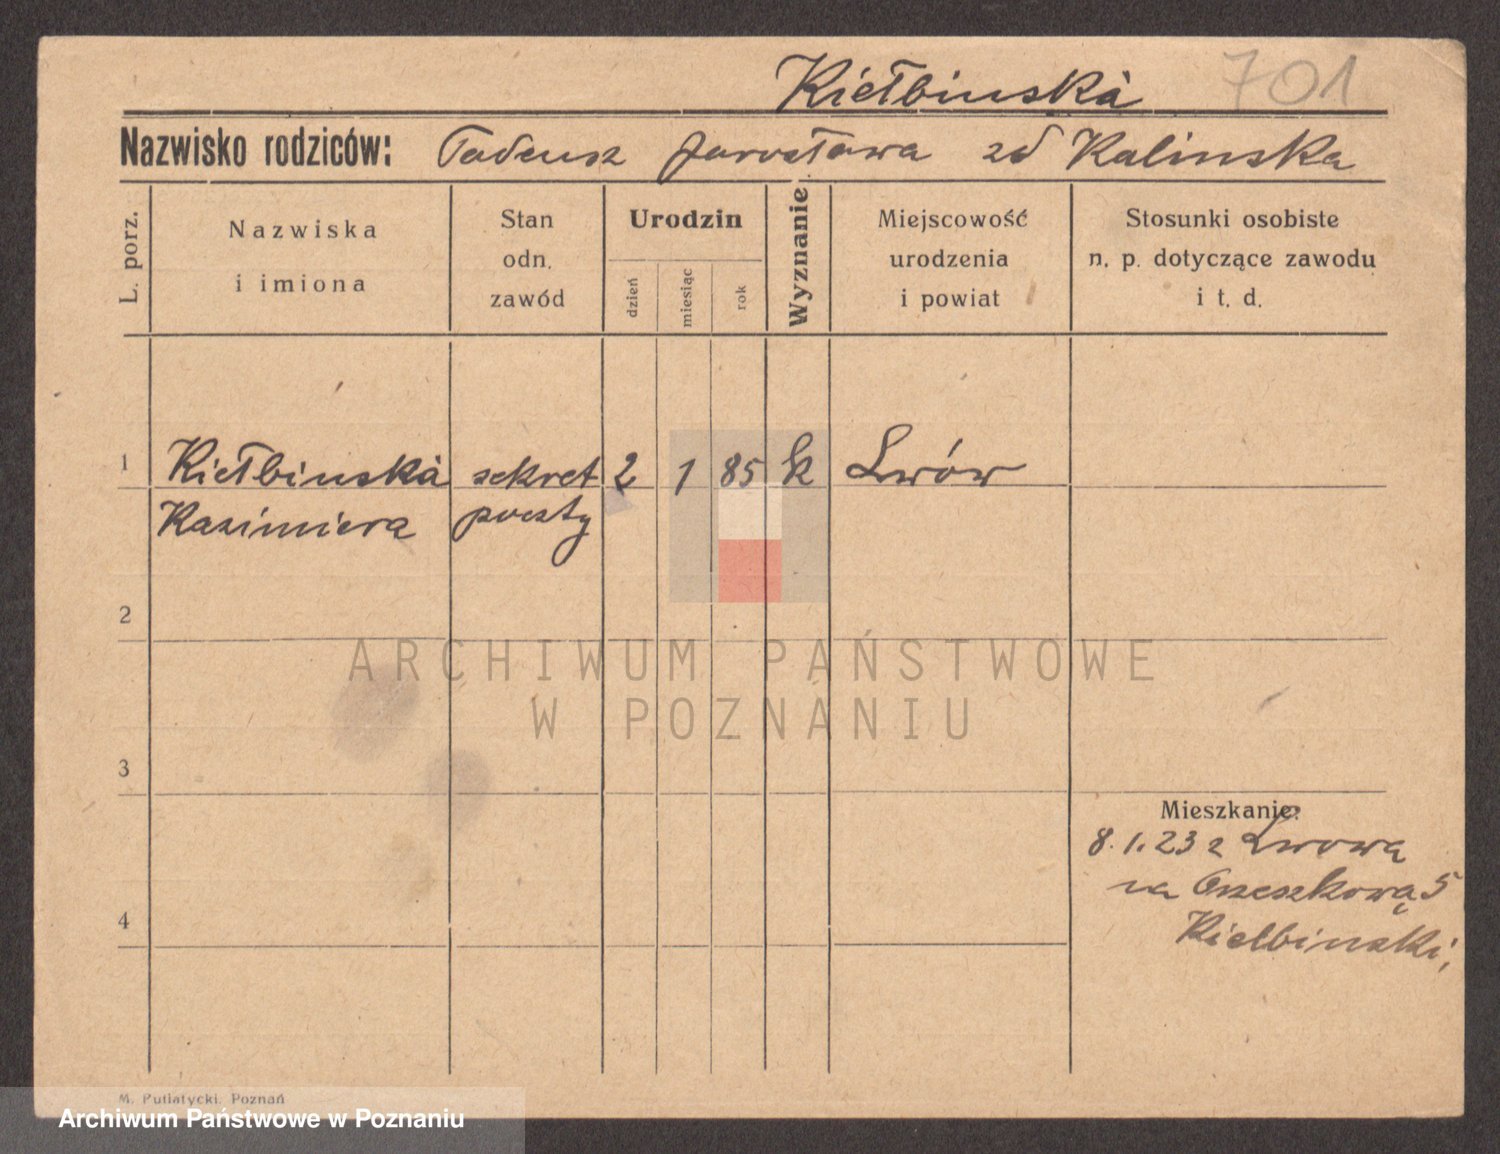 Kiełbinska 701
Nazwisko rodziców: Tadeusz Jarosława zd Kalinska
L. porz.
Nazwiska
i imiona
Stan
odn.
zawód
Urodzin
dzień
miesiąc
rok
Wyznanie
Miejscowość
urodzenia
i powiat
Stosunki osobiste
n. p. dotyczące zawodu
i t. d.
1 Kiełbinska sekret 2 1 85 k Lwów
Kazimiera poczty
2
ARCHIWUM PAŃSTWOWE
W POZNANIU
3
Mieszkanie:
8.1.23 z Lwowa
na Orzeszkową 5
4
Kielbinski,
M. Putiatycki. Poznań
Archiwum Państwowe w Poznaniu